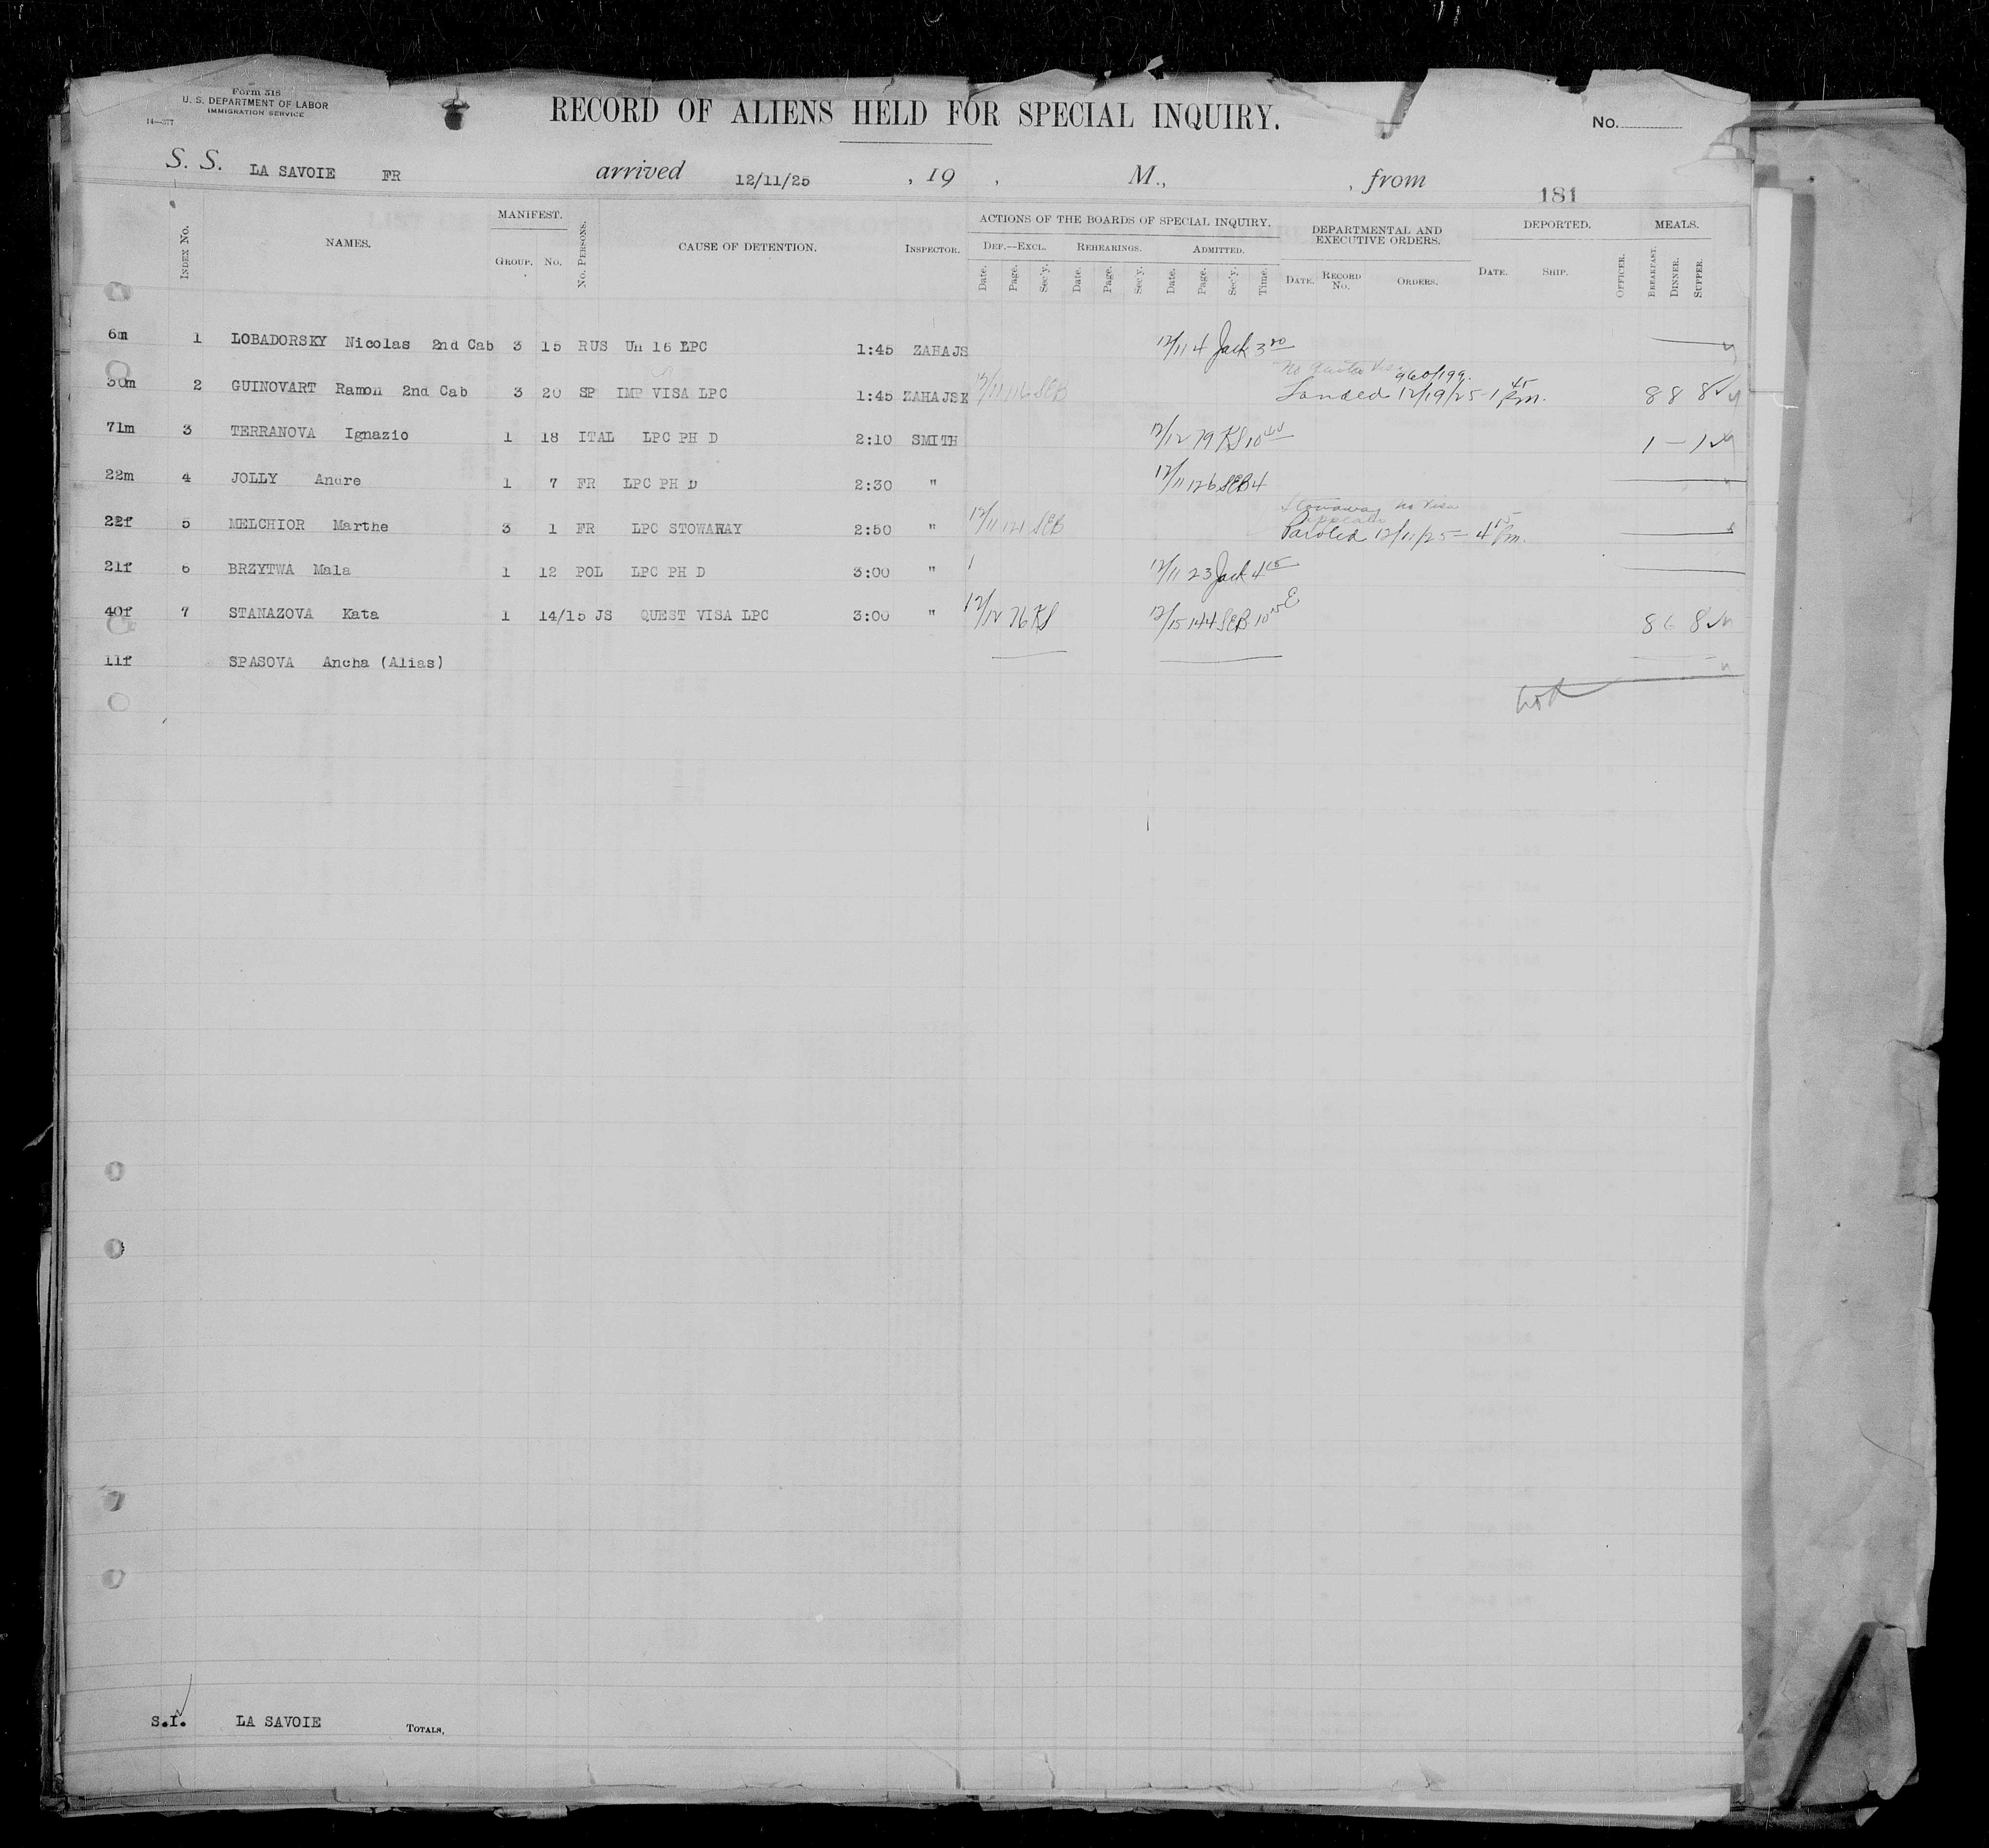 Form 518
U. S. DEPARTMENT OF LABOR
IMMIGRATION SERVICE
14—377
RECORD OF ALIENS HELD FOR SPECIAL INQUIRY.
No.
S. S. LA SAVOIE FR arrived 12/11/25 , 19 , M., , from
181
INDEX No. NAMES. MANIFEST. GROUP. No. No. PERSONS. CAUSE OF DETENTION. INSPECTOR. ACTIONS OF THE BOARDS OF SPECIAL INQUIRY. DEPARTMENTAL AND EXECUTIVE ORDERS. DEPORTED. MEALS.
DEF.—EXCL. REHEARINGS. ADMITTED.
Date. Page. Sec'y. Date. Page. Sec'y. Date. Page. Sec'y. Time. DATE. RECORD No. ORDERS. DATE. SHIP. OFFICER. BREAKFAST. DINNER. SUPPER.
6m 1 LOBADORSKY Nicolas 2nd Cab 3 15 RUS Un 16 LPC 1:45 ZAHAJS 12/11 4 Jack 3
No Quota 960/199.
30m 2 GUINOVART Ramon 2nd Cab 3 20 SP IMP VISA LPC 1:45 ZAHAJSK 12/11 116 SEB Landed 12/19/25 - 1 45 Pm. 8 8 8
71m 3 TERRANOVA Ignazio 1 18 ITAL LPC PH D 2:10 SMITH 12/12 79 KS 10 1 — 1
22m 4 JOLLY Andre 1 7 FR LPC PH D 2:30 " 12/11 126 SEB 4
Stowaway no visa
appeals
22f 5 MELCHIOR Marthe 3 1 FR LPC STOWAWAY 2:50 " 12/11 121 SEB Paroled 12/11/25 — 4 15 Pm.
21f 6 BRZYTWA Mala 1 12 POL LPC PH D 3:00 " 12/11 23 Jack 4 15
40f 7 STANAZOVA Kata 1 14/15 JS QUEST VISA LPC 3:00 " 12/12 76 KS 12/15 144 SEB 10 E 8 6 8
11f SPASOVA Ancha (Alias)
S.I. LA SAVOIE TOTALS,